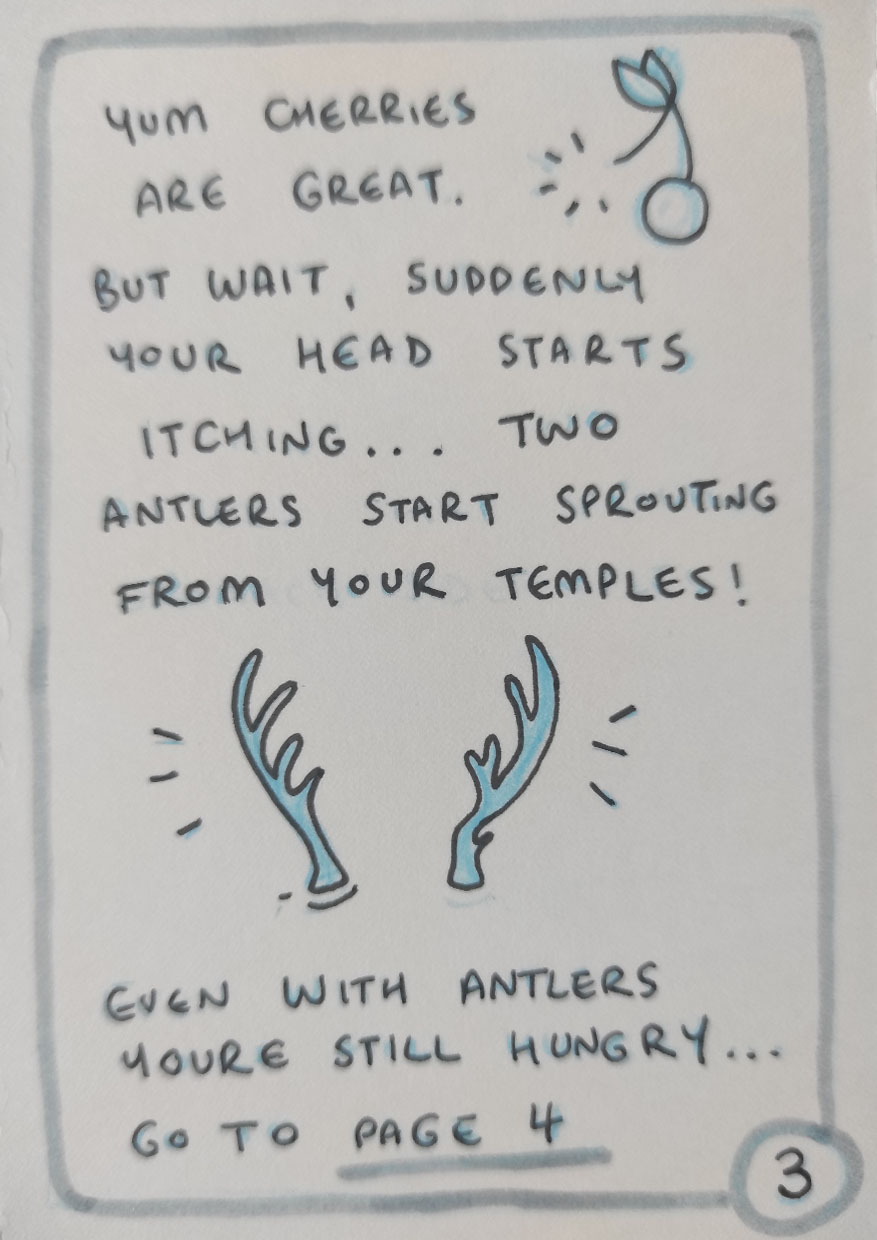 YUM CHERRIES
ARE GREAT.
BUT WAIT, SUDDENLY
YOUR HEAD STARTS
ITCHING... TWO
ANTLERS START SPROUTING
FROM YOUR TEMPLES!
EVEN WITH ANTLERS
YOURE STILL HUNGRY...
GO TO PAGE 4
3